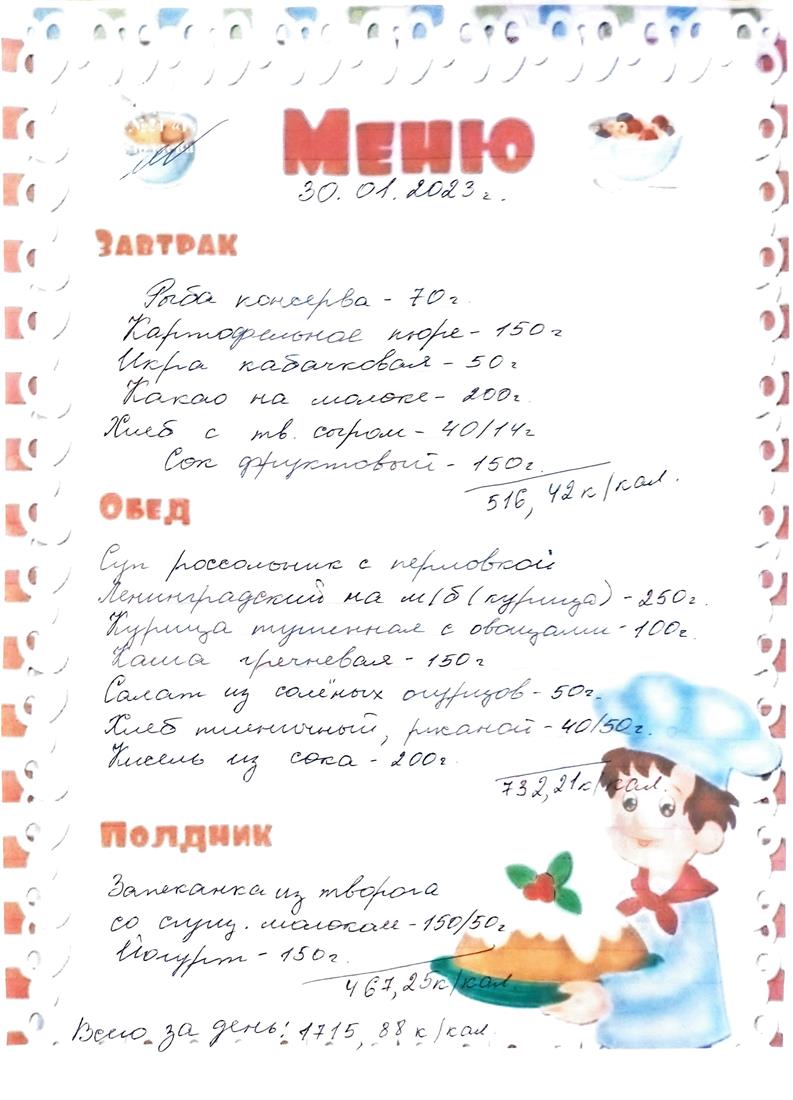 Меню
30.01.2023г.
Завтрак
Рыба консерва - 70г.
Картофельное пюре - 150г
Икра кабачковая - 50г
Какао на молоке - 200г.
Хлеб с тв. сыром - 40/14г
Сок фруктовый - 150г.
516,42к/кал.
Обед
Суп россольник с перловкой
Ленинградский на м/б (курица) - 250г.
Курица тушенная с овощами - 100г.
Каша гречневая - 150г
Салат из солёных огурцов - 50г.
Хлеб пшеничный, ржаной - 40/50г.
Кисель из сока - 200г.
732,21к/кал.
Полдник
Запеканка из творога
со сгущ. молоком - 150/50г
Йогурт - 150г.
467,25к/кал
Всего за день: 1715,88 к/кал.